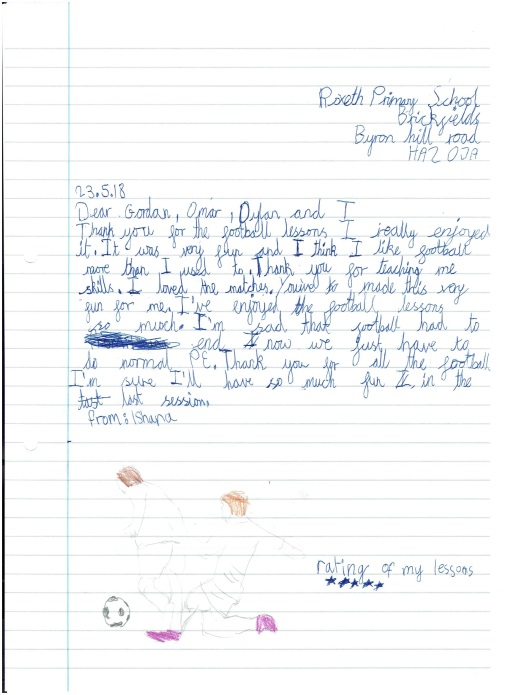 Roxeth Primary School
Brickfields
Byron hill road
HA2 0JA
23.5.18
Dear Gordan, Omar, Dylan and I
Thank you for the football lessons I really enjoyed
it. It was very fun and I think I like football
more than I used to. Thank you for teaching me
skills. I loved the matches. made this very
fun for me, I've enjoyed the football lessons
so much. I'm sad that football had to
end I now we just have to
do normal P.E. Thank you for all the football
I'm sure I'll have so much fun in the
last session.
from: Ishana
rating of my lessons
★★★★★